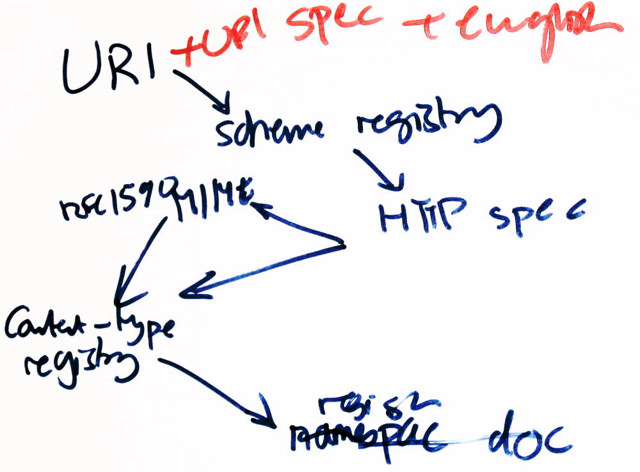 URI +URI spec + english
scheme registry
HTTP spec
rfc1590 MIME
Content-type
registry
doc